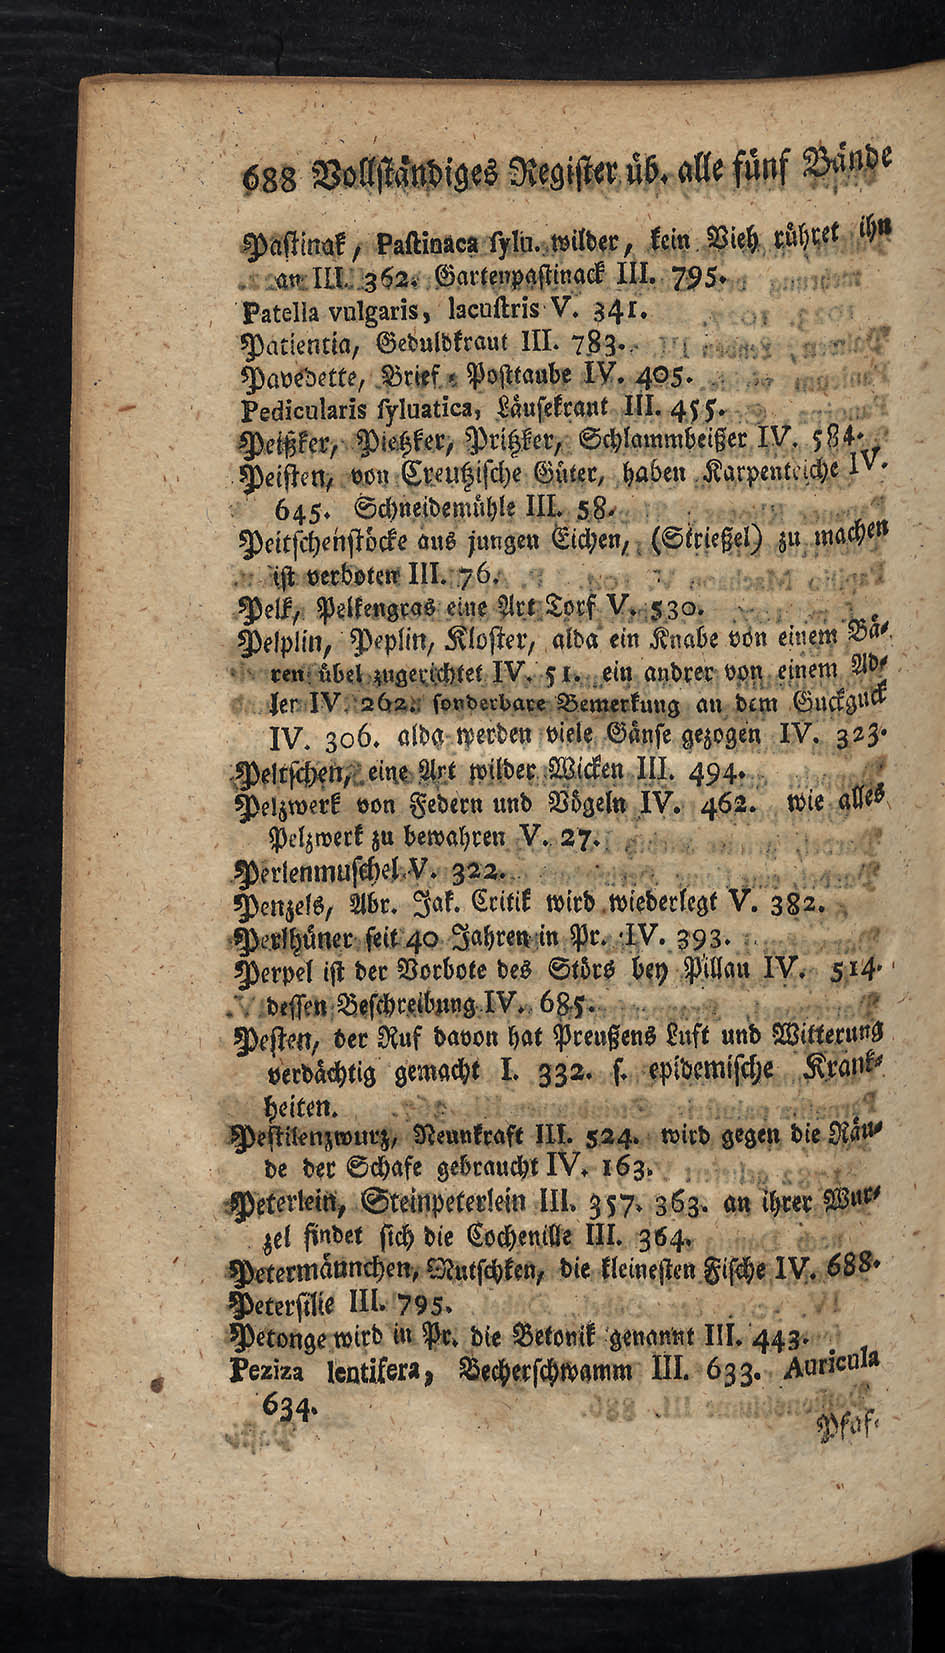 688 Vollständiges Register üb. alle fünf Bände
Pastinak, Pastinaca sylu. wilder, kein Vieh rühret ihn
an III. 362. Gartenpastinack III. 795.
Patella vulgaris, lacustris V. 341.
Patientia, Geduldkraut III. 783.
Pavedette, Brief-Posttaube IV. 405.
Pedicularis syluatica, Läusekraut III. 455.
Peißker, Pietzker, Pritzker, Schlammbeißer IV. 584.
Peisten, von Creutzische Güter, haben Karpenteiche IV.
645. Schneidemühle III. 58.
Peitschenstöcke aus jungen Eichen, (Strießel) zu machen
ist verboten III. 76.
Pelk, Pelkengras eine Art Torf V. 530.
Pelplin, Peplin, Kloster, alda ein Knabe von einem Bä-
ren übel zugerichtet IV. 51. ein andrer von einem Ad-
ler IV. 262. sonderbare Bemerkung an dem Guckguck
IV. 306. alda werden viele Gänse gezogen IV. 323.
Peltschen, eine Art wilder Wicken III. 494.
Pelzwerk von Federn und Vögeln IV. 462. wie alles
Pelzwerk zu bewahren V. 27.
Perlenmuschel V. 322.
Penzels, Abr. Jak. Critik wird wiederlegt V. 382.
Perlhüner seit 40 Jahren in Pr. IV. 393.
Perpel ist der Vorbote des Störs bey Pillau IV. 514.
dessen Beschreibung IV. 685.
Pesten, der Ruf davon hat Preußens Luft und Witterung
verdächtig gemacht I. 332. s. epidemische Krank-
heiten.
Pestilenzwurz, Neunkraft III. 524. wird gegen die Räu-
de der Schafe gebraucht IV. 163.
Peterlein, Steinpeterlein III. 357. 363. an ihrer Wur-
zel findet sich die Cochenille III. 364.
Petermännchen, Mutschken, die kleinesten Fische IV. 688.
Petersilie III. 795.
Petonge wird in Pr. die Betonik genannt III. 443.
Peziza lentifera, Becherschwamm III. 633. Auricula
634.
Pfaf-